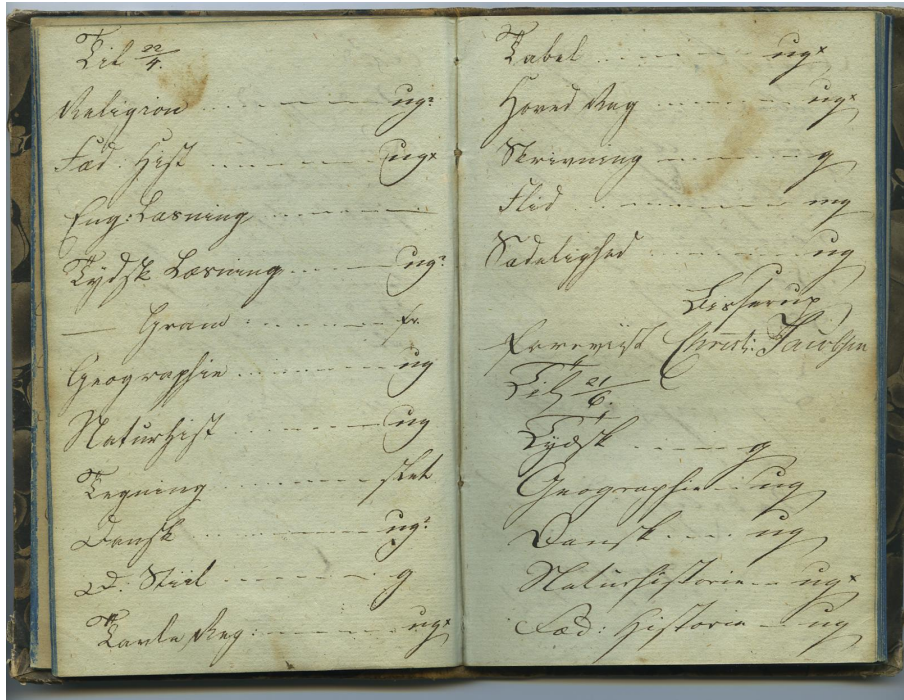 Til 22/4.
Religion . . . . . . . ug÷
Fæd: Hist . . . . . . . ug×
Eng: Læsning . . . . . . .
Tydsk Læsning . . . . . . . ug÷
— Gram: . . . . . . . fr.
Geographie . . . . . . . ug
Naturhist . . . . . . . ug
Tegning . . . . . . . slet
Dansk . . . . . . . ug÷
D. Stiil . . . . . . . g
Tavle Reg: . . . . . . . ug×
Tabel . . . . . . . ug×
Hoved Reg . . . . . . . ug×
Skrivning . . . . . . . g
Flid . . . . . . . mg
Sædelighed . . . . . . . ug
Foreviist Christ: Jacobsen
Til 21/6.
Tydsk . . . . g
Geographie . . ug
Dansk . . . . ug
Naturhistorie . . ug×
Fæd: Historie . . ug